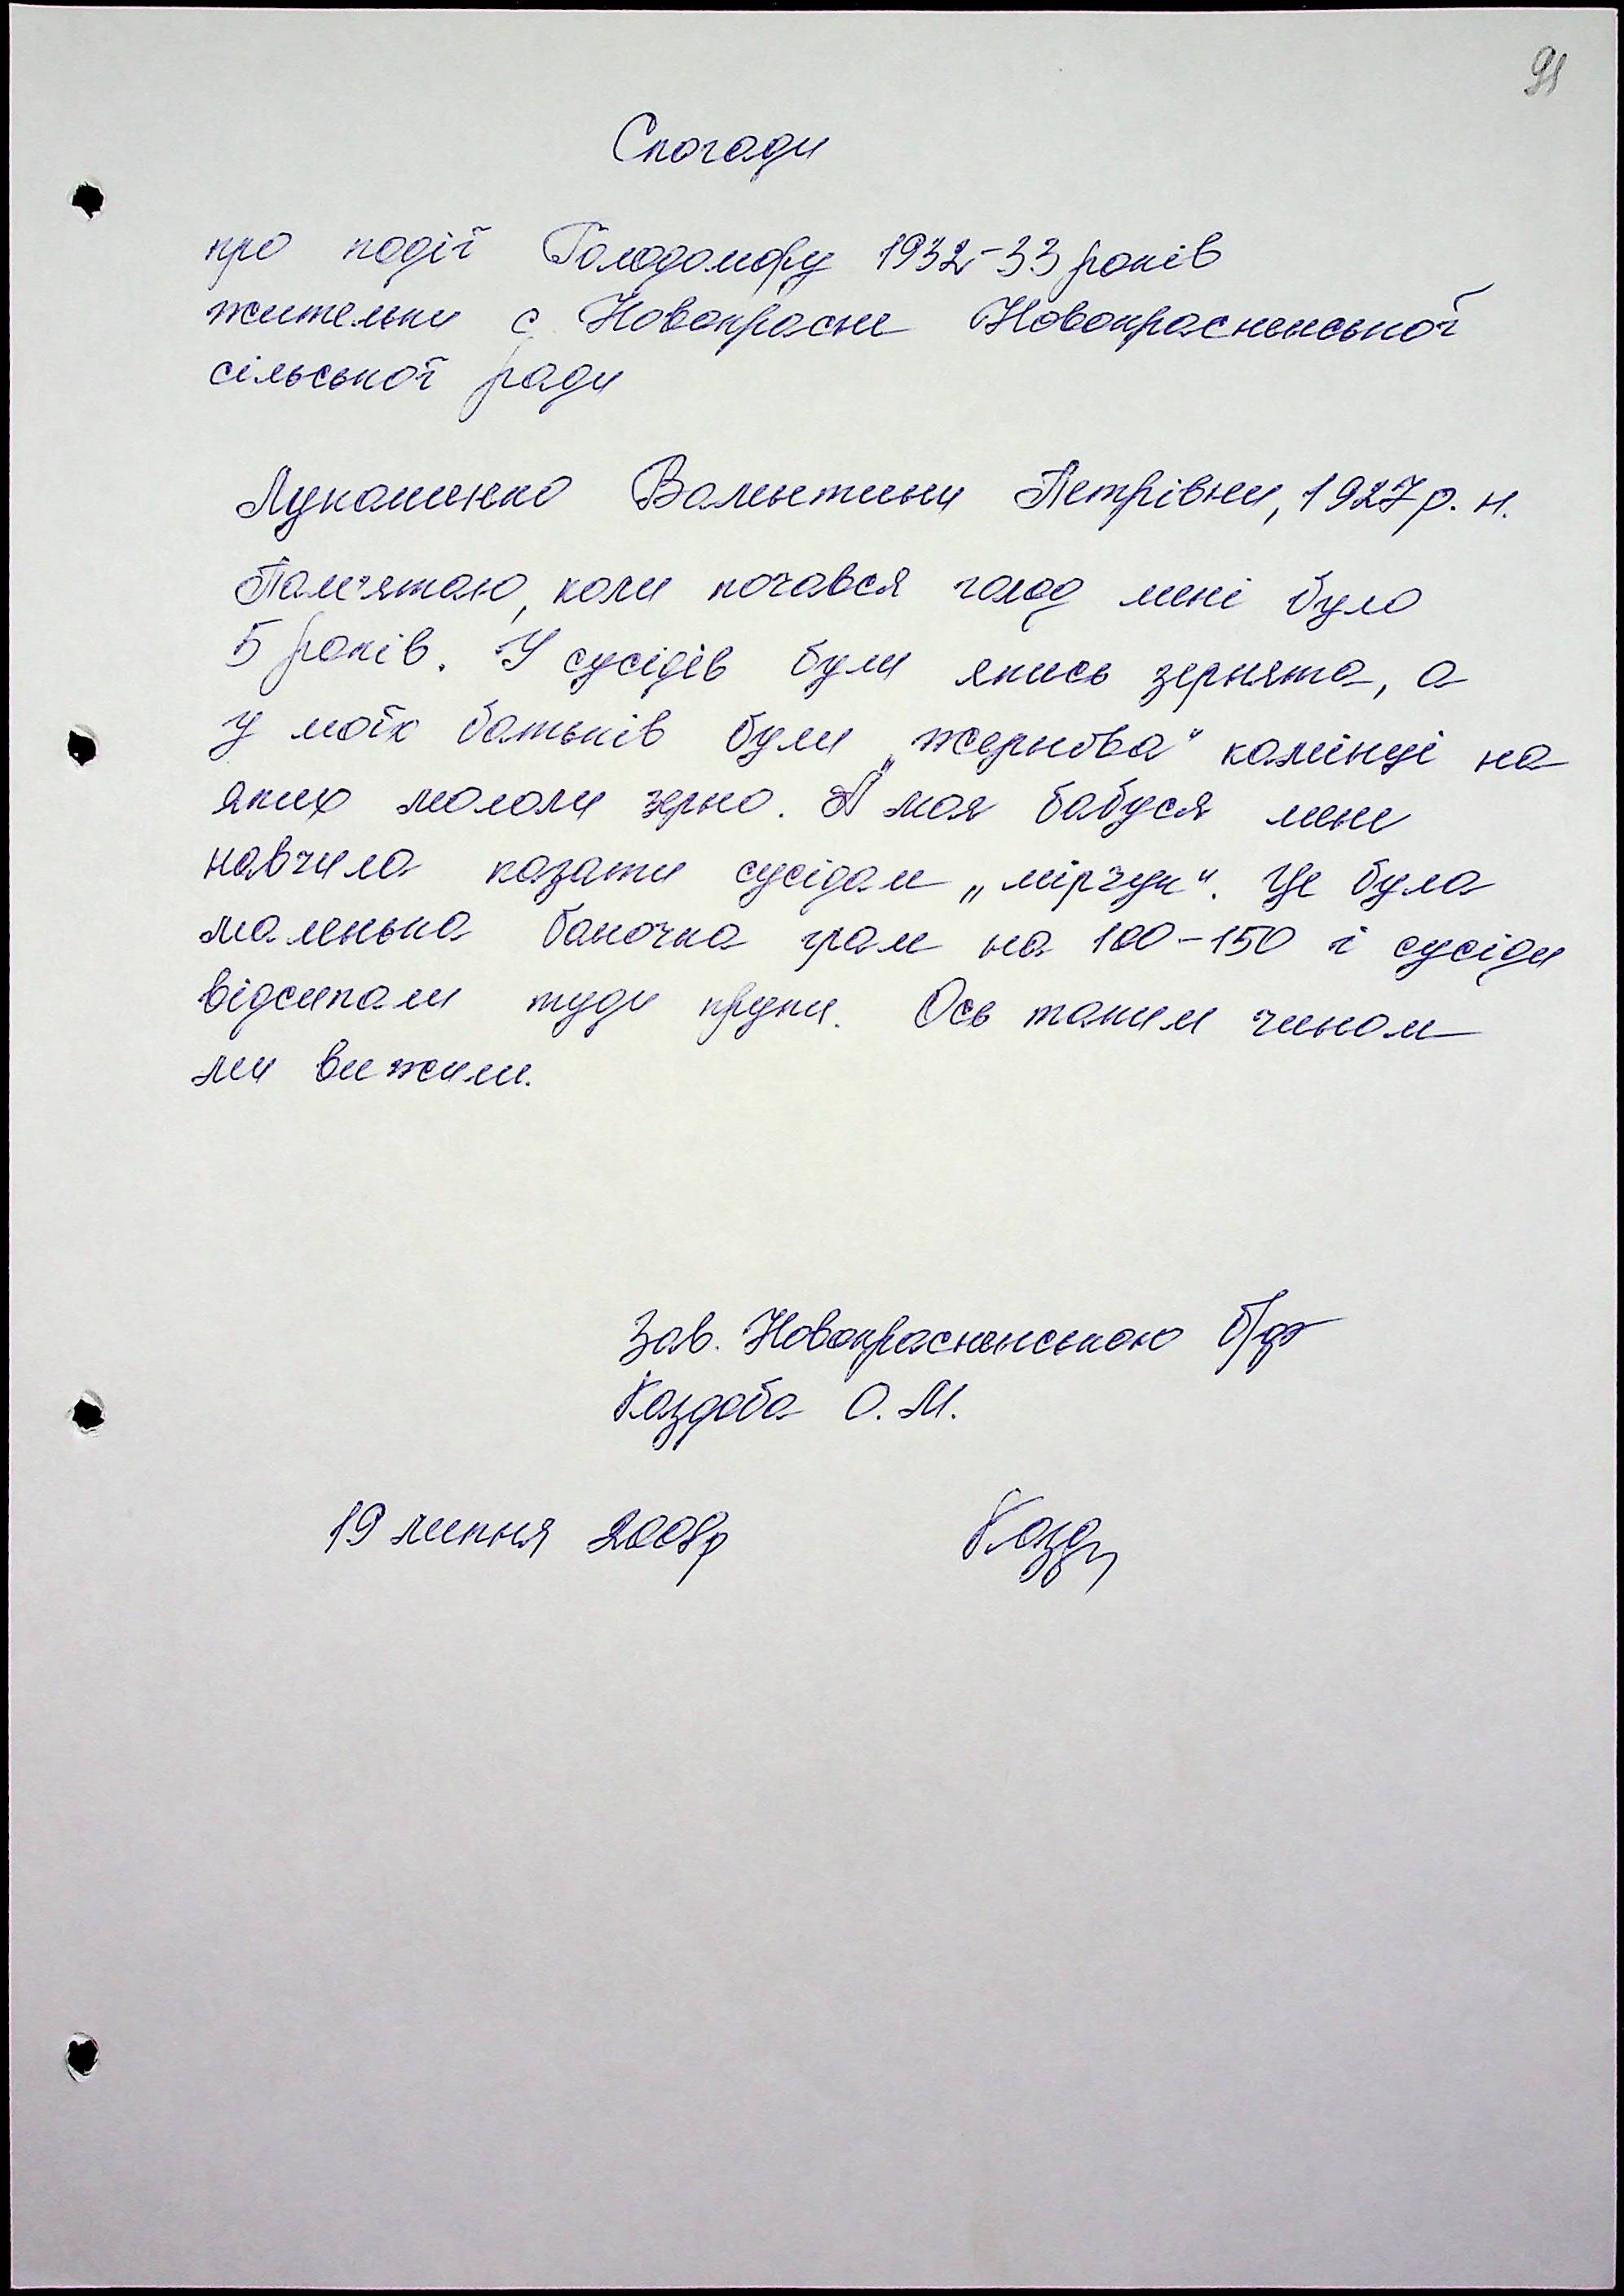 91
Спогади
про події Голодомору 1932-33 років
жительки с. Новокрасне Новокрасненської
сільської ради
Лукашенко Валентини Петрівни, 1927 р. н.
Пам'ятаю, коли почався голод мені було
5 років. У сусідів були якись зернята, а
у моїх батьків були „жернова" камінці на
яких мололи зерно. А моя бабуся мене
навчила казати сусідам „мірчук". Це була
маленька баночка грам на 100-150 і сусіди
відсипали туди крупи. Ось таким чином
ми вижили.
Зав. Новокрасненською б/ф
Каздоба О. М.
19 липня 2008р